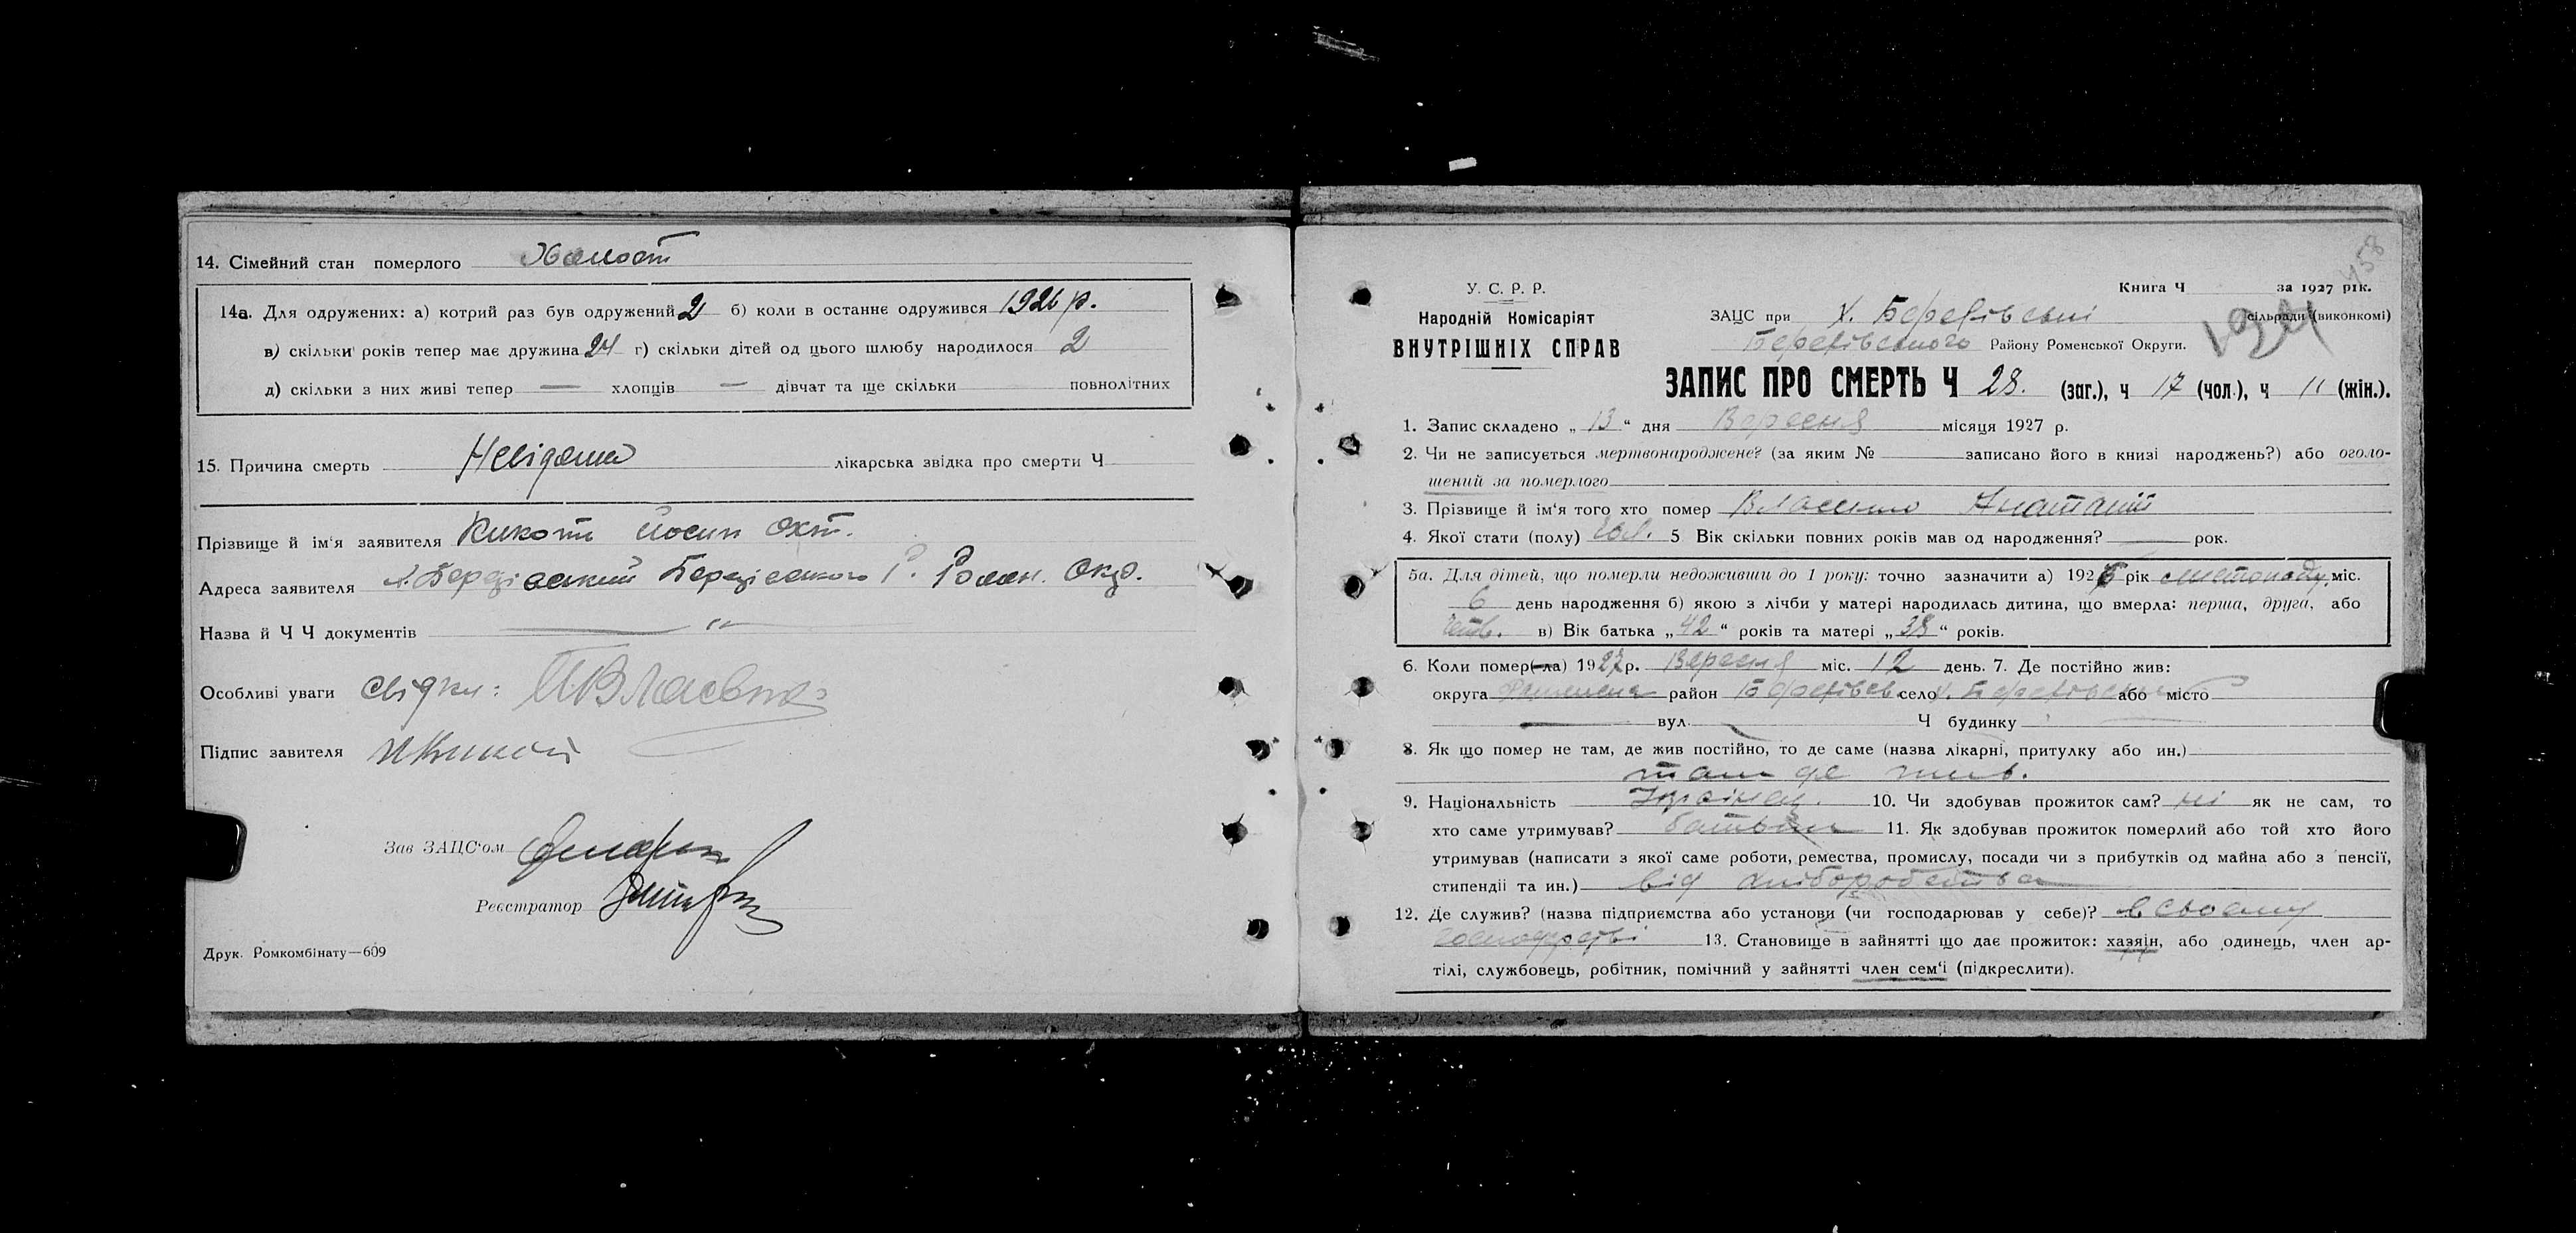 14. Сімейний стан померлого Холост
14а. Для одружених: а) котрий раз був одружений 2 б) коли в останнє одружився 1926 р.
в) скільки років тепер має дружина 24 г) скільки дітей од цього шлюбу народилося 2
д) скільки з них живі тепер — хлопців — дівчат та ще скільки повнолітних
15. Причина смерть Невідома лікарська звідка про смерти Ч
Прізвище й ім'я заявителя Кикоть Йосип Охт.
Адреса заявителя х. Березівський Березівського Р. Ромн. Окр.
Назва й Ч Ч документів — " —
Особливі уваги свідки: Власенко
Підпис завителя Кикоть
Зав ЗАЦС'ом
Реєстратор
Друк. Ромкомбінату—609
458
У. С. Р. Р.
Народній Комісаріят
ВНУТРІШНІХ СПРАВ
Книга Ч за 1927 рік.
ЗАЦС при х. сільради (виконкомі)
Району Роменської Округи.
ЗАПИС ПРО СМЕРТЬ Ч 28. (заг.), ч 17 (чол.), ч 11 (жін.).
1. Запис складено „ 13 “ дня Вересня місяця 1927 р.
2. Чи не записується мертвонароджене? (за яким № записано його в книзі народжень?) або оголо-
шений за померлого
3. Прізвище й ім'я того хто помер Власенко Анатапій
4. Якої стати (полу) Чол. 5 Вік скільки повних років мав од народження? — рок.
5а. Для дітей, що померли недоживши до 1 року: точно зазначити а) 1926 рік листопаду міс.
6 день народження б) якою з лічби у матері народилась дитина, що вмерла: перша, друга, або
четв. в) Вік батька „ 42 “ років та матері „ 38 “ років.
6. Коли помер(-ла) 1927 р. Вересня міс. 12 день. 7. Де постійно жив:
округа район село х. або місто
вул. Ч будинку
8. Як що помер не там, де жив постійно, то де саме (назва лікарні, притулку або ин.)
там де жив.
9. Національність Українец. 10. Чи здобував прожиток сам? ні як не сам, то
хто саме утримував? батьки 11. Як здобував прожиток померлий або той хто його
утримував (написати з якої саме роботи, ремества, промислу, посади чи з прибутків од майна або з пенсії,
стипендії та ин.) від хліборобства
12. Де служив? (назва підприємства або установи (чи господарював у себе)? в своєму
господарстві 13. Становище в зайнятті що дає прожиток: хазяїн, або одинець, член ар-
тілі, службовець, робітник, помічний у зайнятті член сем'ї (підкреслити).